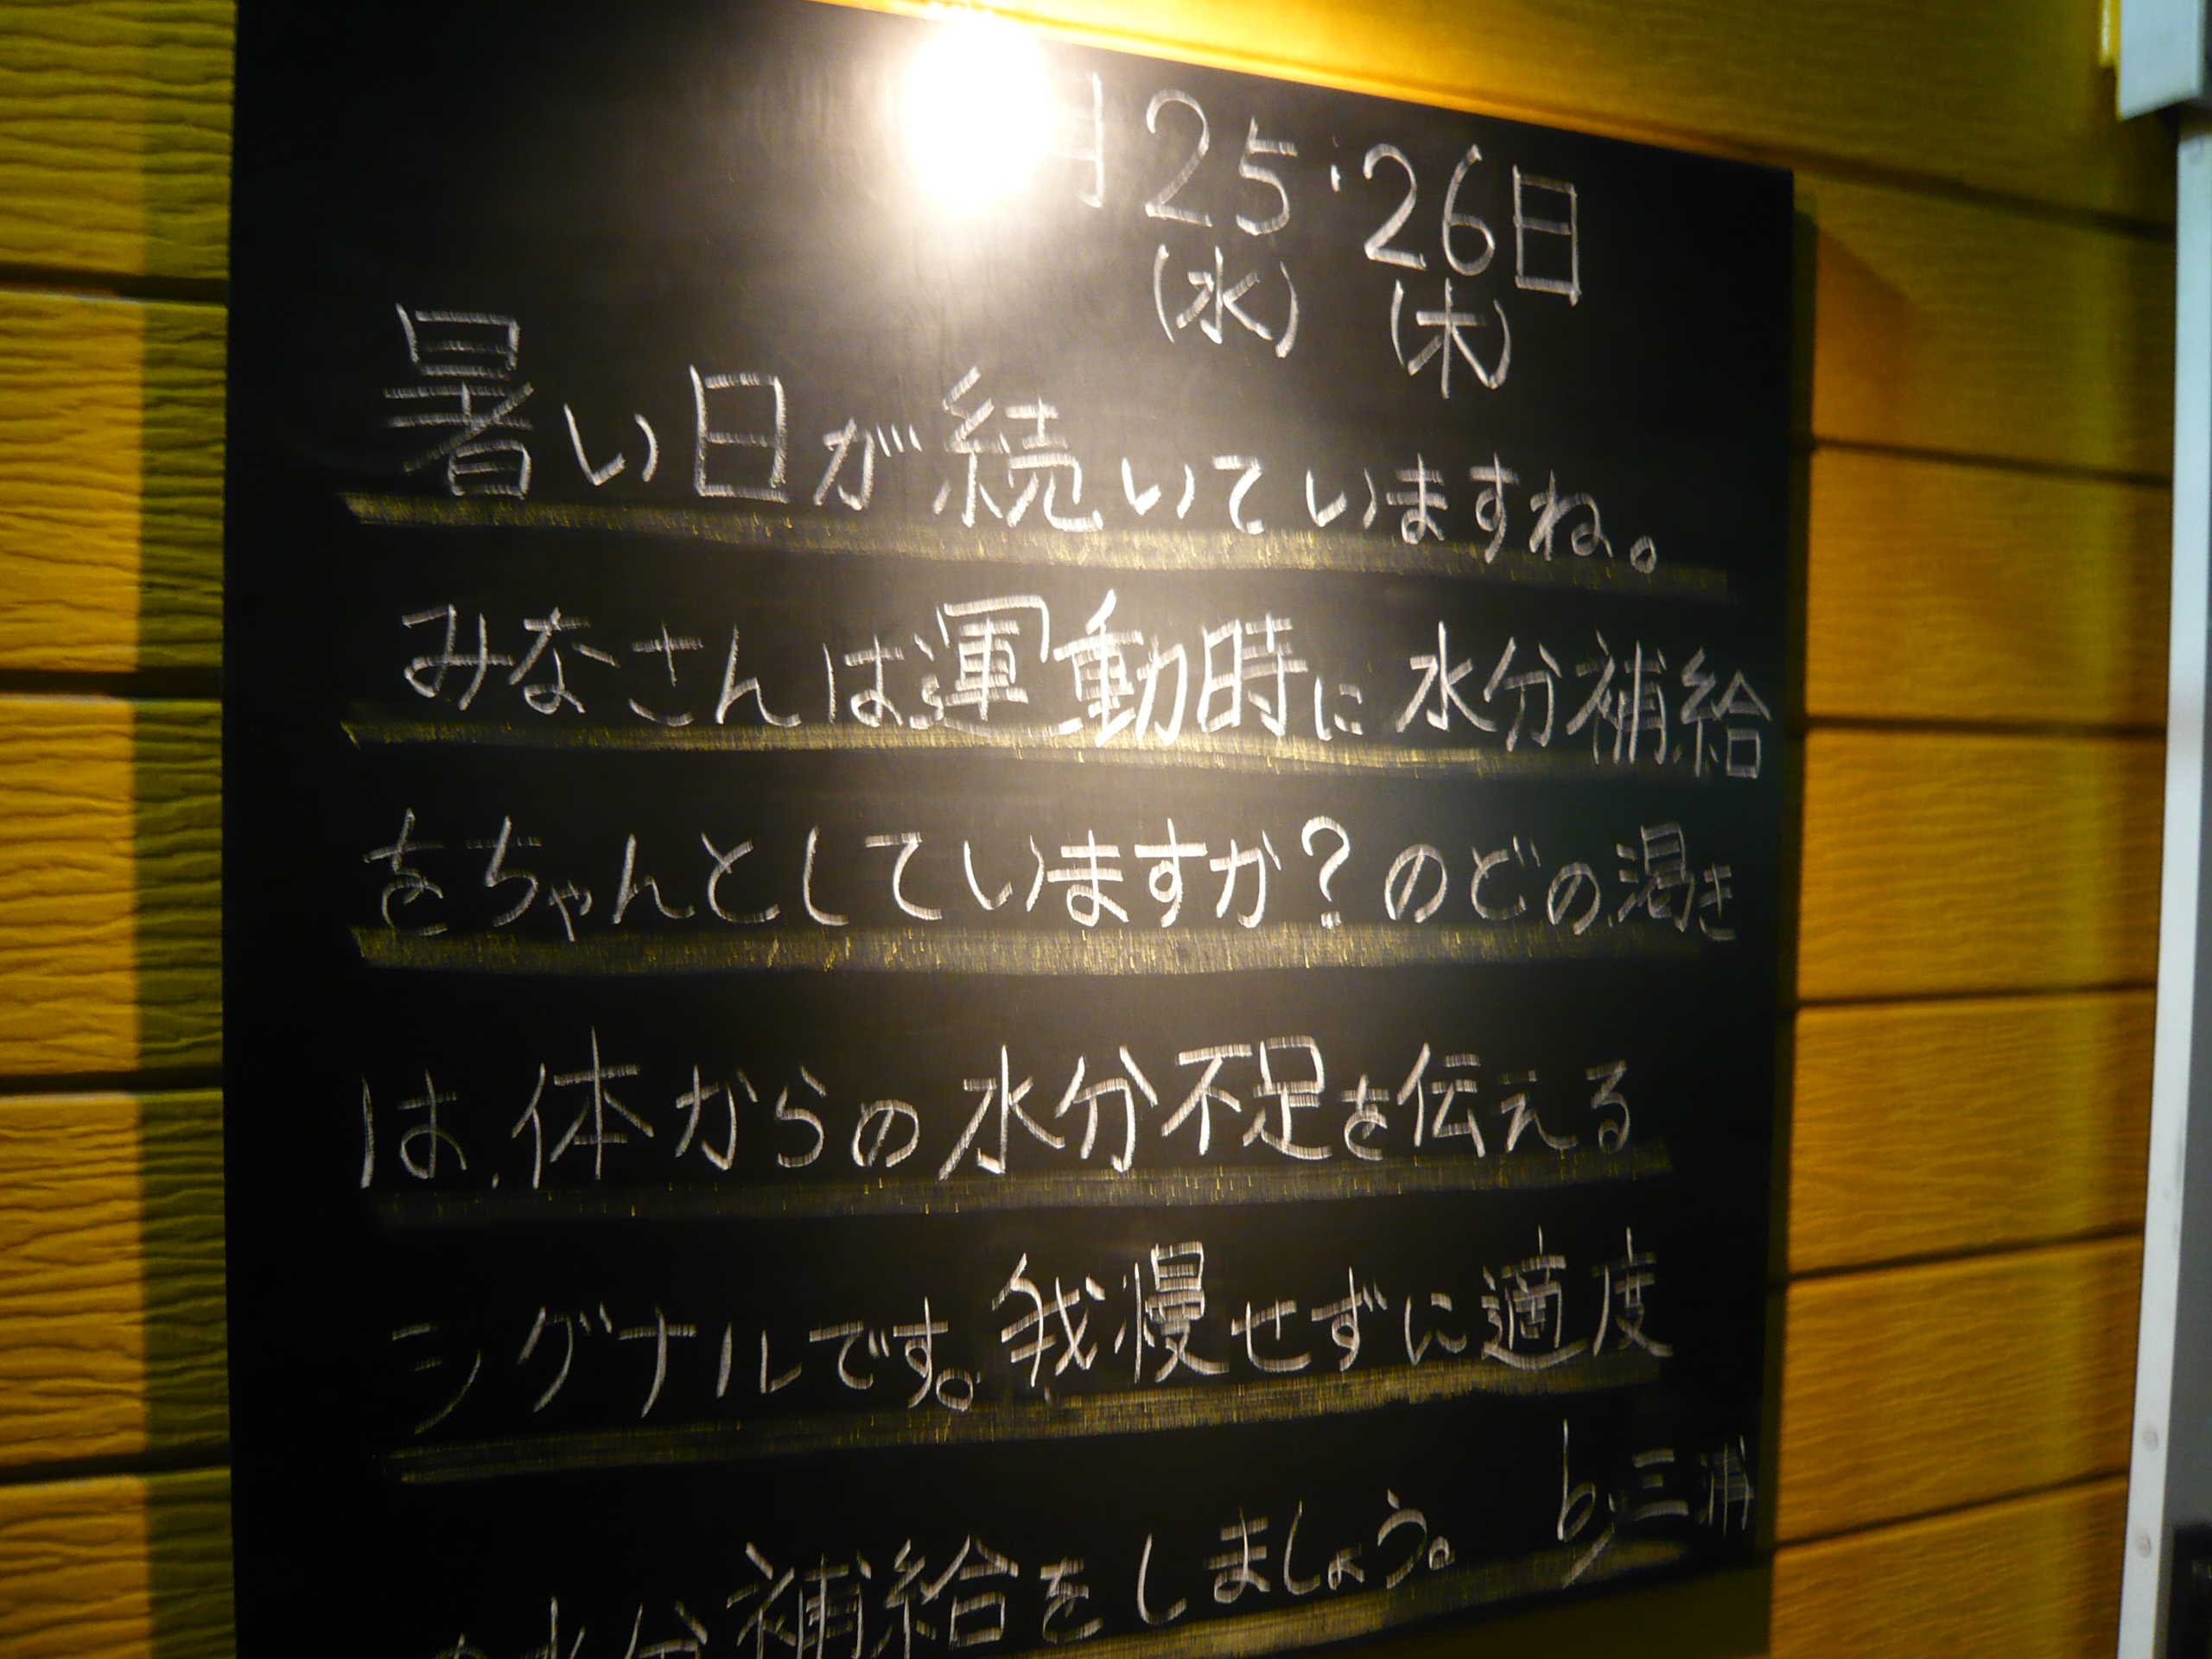 月25・26日
(水) (木)
暑い日が続いていますね。
みなさんは運動時に水分補給
をちゃんとしていますか?のどの渇き
は、体からの水分不足を伝える
シグナルです。我慢せずに適度
水分補給をしましょう。 by三浦